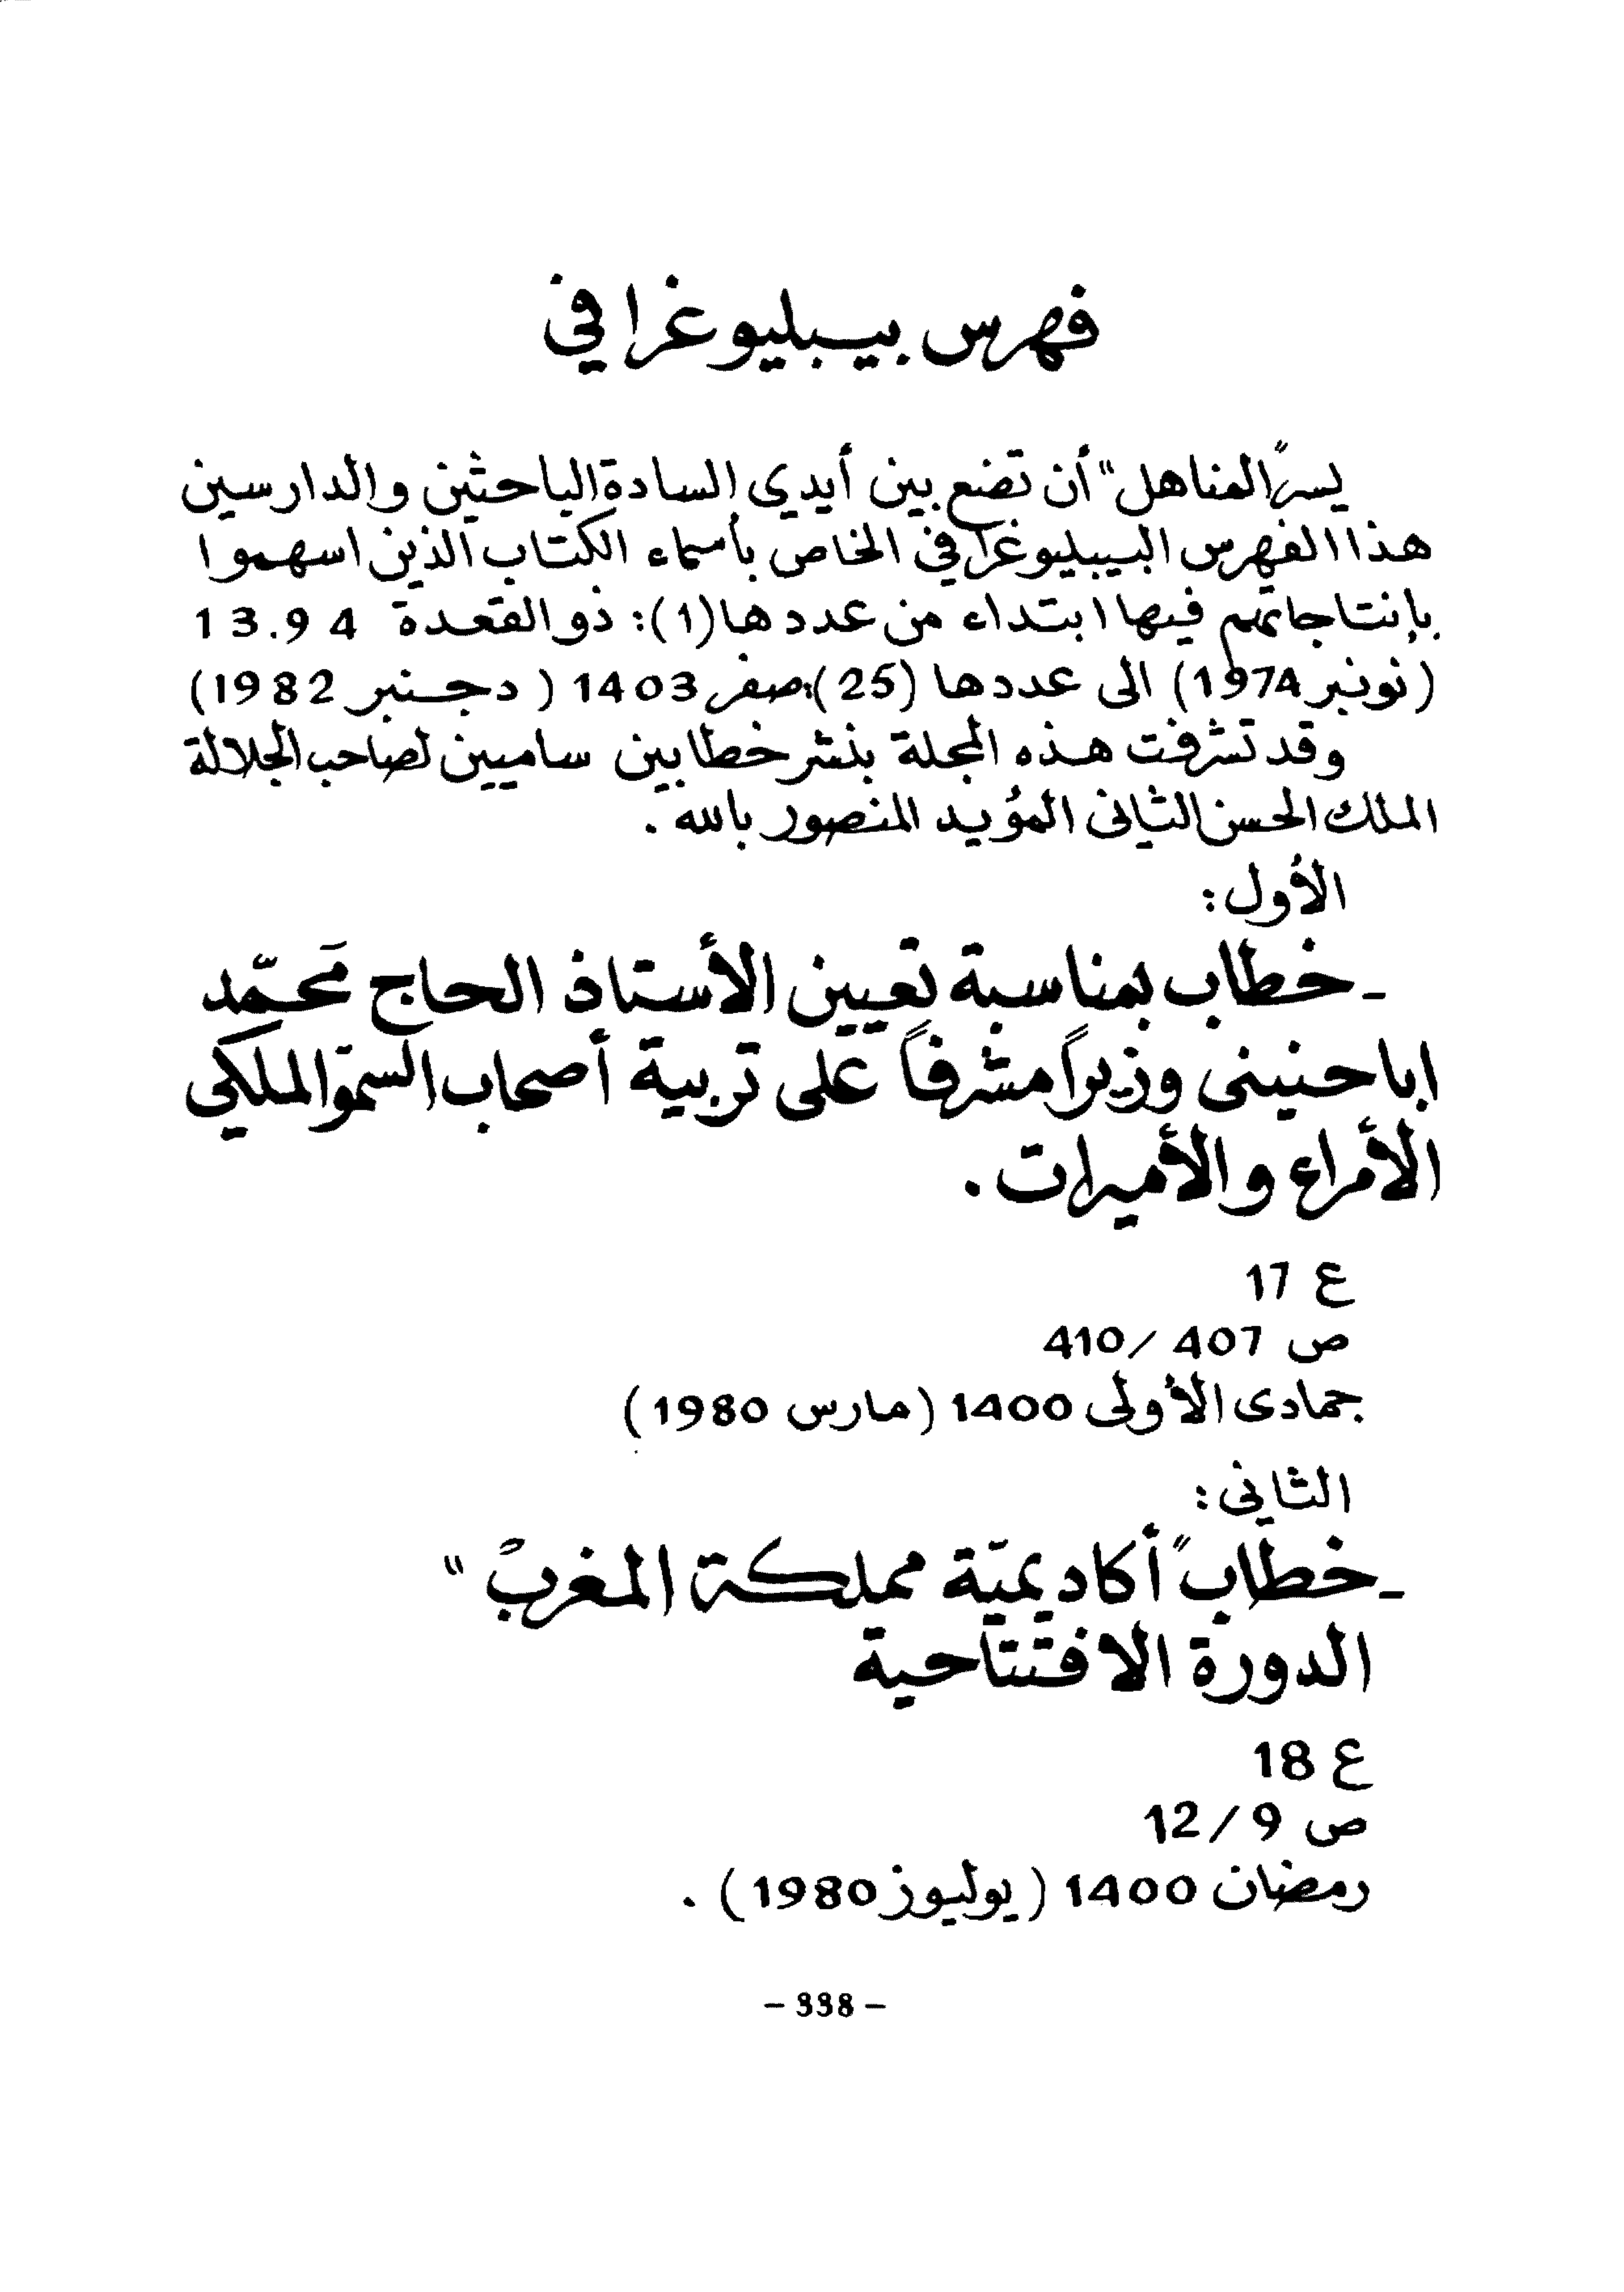 فهرس بيبليوغرافي
يسرّ "المناهل" أن تضع بين أيدي السادة الباحثين والدارسين
هذا الفهرس البيبليوغرافي الخاص بأسماء الكتاب الذين اسهموا
بإنتاجاتهم فيها ابتداء من عددها (1): ذو القعدة 13.94
(نونبر 1974) الى عددها (25): صفر 1403 (دجنبر 1982)
وقد تشرفت هذه المجلة بنشر خطابين ساميين لصاحب الجلالة
الملك الحسن الثانى المؤيد المنصور بالله .
الأول :
- خطاب بمناسبة تعيين الأستاذ الحاج مَحمّد
اباحنينى وزيراً مشرفاً على تربية أصحاب السموّ الملكي
الأمراء والأميرات .
ع 17
ص 407 /410
جمادى الأولى 1400 (مارس 1980)
الثاني :
- خطاب "أكاديميّة مملكة المغرب"
الدورة الافتتاحية
ع 18
ص 9 /12
رمضان 1400 (يوليوز 1980) .
- 338 -